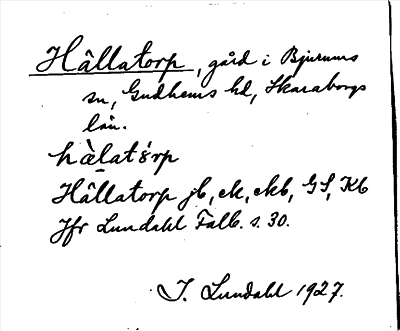 Hållatorp, gård i Bjurums
sn, Gudhems hd, Skaraborgs
län.
hàlatórp
Hållatorp jb, ek, ekb, GS, Kb
Jfr Lundahl Falb. s. 30.
I. Lundahl 1927.